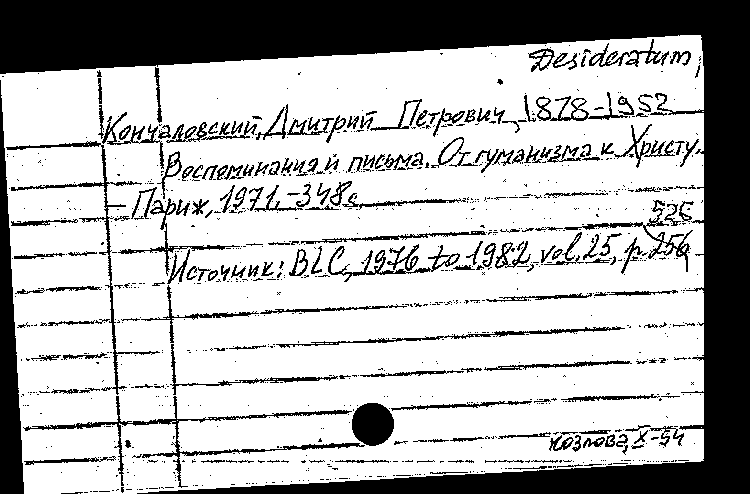 Desideratum
Кончаловский, Дмитрий Петрович, 1878-1952
Воспоминания и письма. От гуманизма к Христу.
- Париж, 1971, -348с.
526
Источник: BLC, 1976 to 1982, vol. 25, p. 256
Козлова, X-94